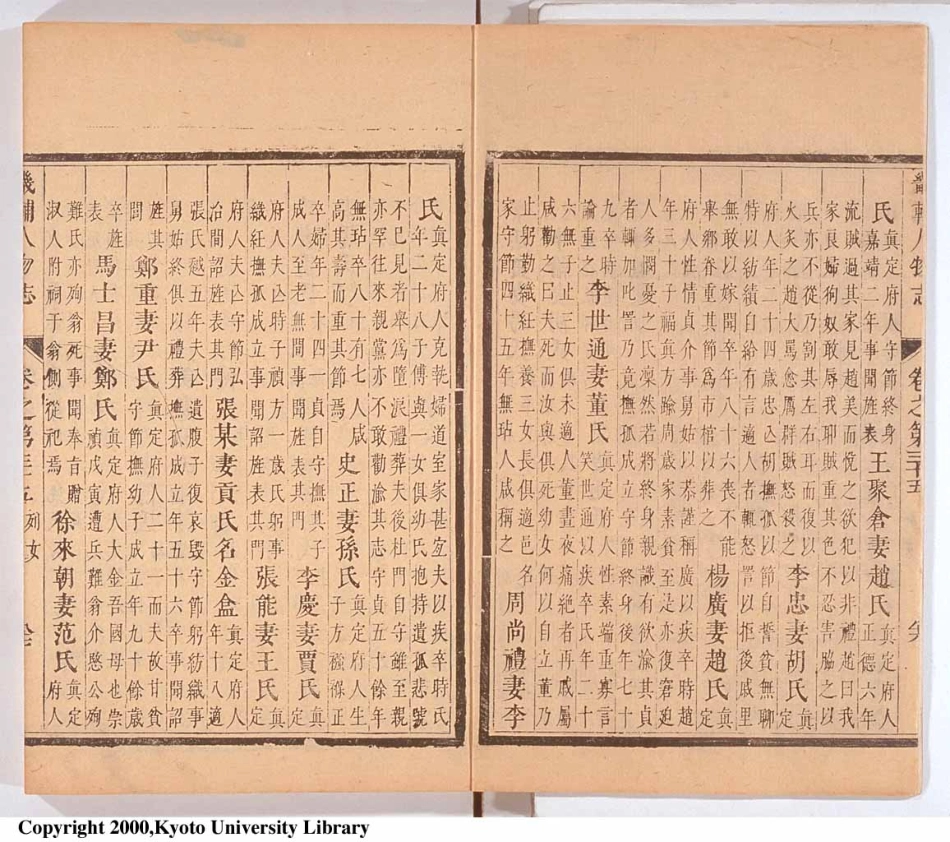 畿輔人物志 卷之第三十五
氏 真定府人守節終身嘉靖二年事聞旌表 王聚倉妻趙氏 真定府人正德六年
流賊過其家見趙美而悅之欲犯以非禮趙曰我
家良婦狗奴敢辱我耶賊重其色不忍害脇之以
兵亦不從乃割其左右耳而復之
火炙之趙大罵愈厲群賊怒殺之 李忠妻胡氏 真定
府人年二十四歲忠亾胡撫孤以節自誓貧無聊
特以紡績自給有言適人者輒怒詈以拒後戚里
無敢以嫁聞卒年八十六喪不能
舉鄉眷重其節爲市棺以葬之 楊廣妻趙氏 真定
府人性情貞介事舅姑以恭謹稱廣以疾卒時趙
年三十子福真方踰周歲家素貧至是亦復窘迫
人多憫憂之氏凜然若將終身親識有欲渝其貞
者輒加叱詈乃竟撫孤成立守節終身後年七十
九卒時論重之 李世通妻董氏 真定府人性素端重寡言笑世通以疾卒氏年二十
六無子止三女俱未適人董晝夜痛絕者再戚屬
咸勸之曰夫死而汝與俱死幼女何以自立董乃
止躬勤織紅撫養三女長俱適邑名
家守節四十五年無玷人咸稱之 周尚禮妻李
氏 真定府人克乾婦道室家甚宜夫以疾卒時氏
年二十八子傅與一女俱幼氏抱持遺孤悲號
不已見若舉爲墮淚禮葬夫後杜門自守雖至親
亦罕往來親黨亦不敢勸渝其志守貞五十餘年
無玷卒年八十有七人咸
高其壽而重其節焉 史正妻孫氏 真定府人生子方襁褓正
卒婦年二十四一貞自守撫其子
成人至老無間事聞旌表其門 李慶妻賈氏 真定
府人夫亾時子禎方一歲氏躬事
織紅撫孤成立事聞詔旌表其門 張能妻王氏 真定
府人夫亾守節弘
冶間詔旌表其門 張某妻貢氏名金盒 真定府人年十八適
張氏越五年夫亾遺腹子復哀毀守節躬紡織事
舅姑終俱以禮葬撫孤成立年五十六卒事聞詔
旌其門 鄭重妻尹氏 真定府人二十一而夫故甘貧守節撫幼子成立年九十餘歲
卒旌表 馬士昌妻鄭氏 真定府人大金吾國母也崇禎戊寅遭兵難翁介愍公殉
難氏亦殉翁死事聞奉旨贈
淑人附祠于翁側從祀焉 徐來朝妻范氏 真定府人
畿輔人物志 卷之第三十五 列女
Copyright 2000,Kyoto University Library